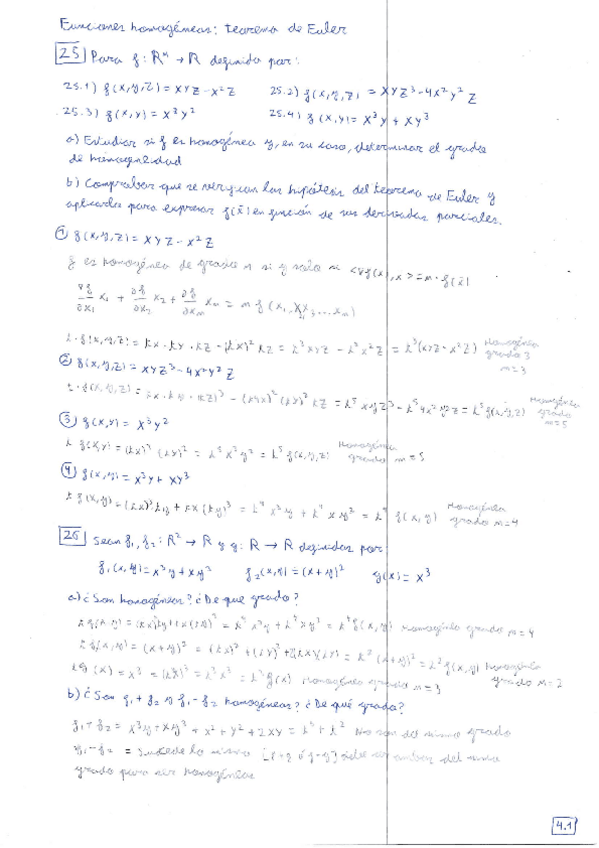 Funciones homogéneas: teorema de Euler
25 Para f: Rⁿ → R definida por:
25.1) f(x,y,z) = xyz - x²z 25.2) f(x,y,z) = xyz³ - 4x²y²z
25.3) f(x,y) = x³y² 25.4) f(x,y) = x³y + xy³
a) Estudiar si f es homogénea y, en su caso, determinar el grado
de homogeneidad
b) Comprobar que se verifican las hipótesis del teorema de Euler y
aplicarla para expresar f(x̄) en función de sus derivadas parciales.
1 f(x,y,z) = xyz - x²z
f es homogénea de grado m si y solo si <∇f(x), x> = m · f(x̄)
x₁ + ∂f/∂x₂ x₂ + ∂f/∂xₘ xₘ = m f(x₁, ... xₘ)
k · f(x,y,z) = kx · ky · kz - (kx)² kz = k³xyz - k³x²z = k³(xyz - x²z) Homogénea
grado 3
m = 3
2 f(x,y,z) = xyz³ - 4x²y²z
k · f(x,y,z) = kx · ky · (kz)³ - (k4x)² (ky)² kz = k⁵xyz³ - k⁵4x²y²z = k⁵f(x,y,z) Homogénea
grado
m = 5
3 f(x,y) = x³y²
k f(x,y) = (kx)³ (ky)² = k⁵x³y² = k⁵f(x,y,z) Homogénea
grado m = 5
4 f(x,y) = x³y + xy³
k f(x,y) = (kx)³ky + kx(ky)³ = k⁴x³y + k⁴xy³ = k⁴ f(x,y) Homogénea
grado m = 4
26 Sean f₁, f₂: R² → R y g: R → R definidas por:
f₁(x,y) = x³y + xy³ f₂(x,y) = (x+y)² g(x) = x³
a) ¿Son homogéneas? ¿De qué grado?
k⁴x³y + k⁴xy³ = k⁴f(x,y) Homogénea grado m = 4
(x+y)² = (kx)² + (ky)² + 2(kx)(ky) = k²(x+y)² = k²f(x,y) Homogénea
grado m = 2
kg(x) = x³ = (kx)³ = k³x³ = k³g(x) Homogénea grado m = 3
b) ¿Son f₁ + f₂ y f₁ - f₂ homogéneas? ¿De qué grado?
f₁ + f₂ = x³y + xy³ + x² + y² + 2xy = k⁴ + k² No son del mismo grado
f₁ - f₂ = Sucede lo mismo debe ser ambas del mismo
grado para ser homogéneas
4.1